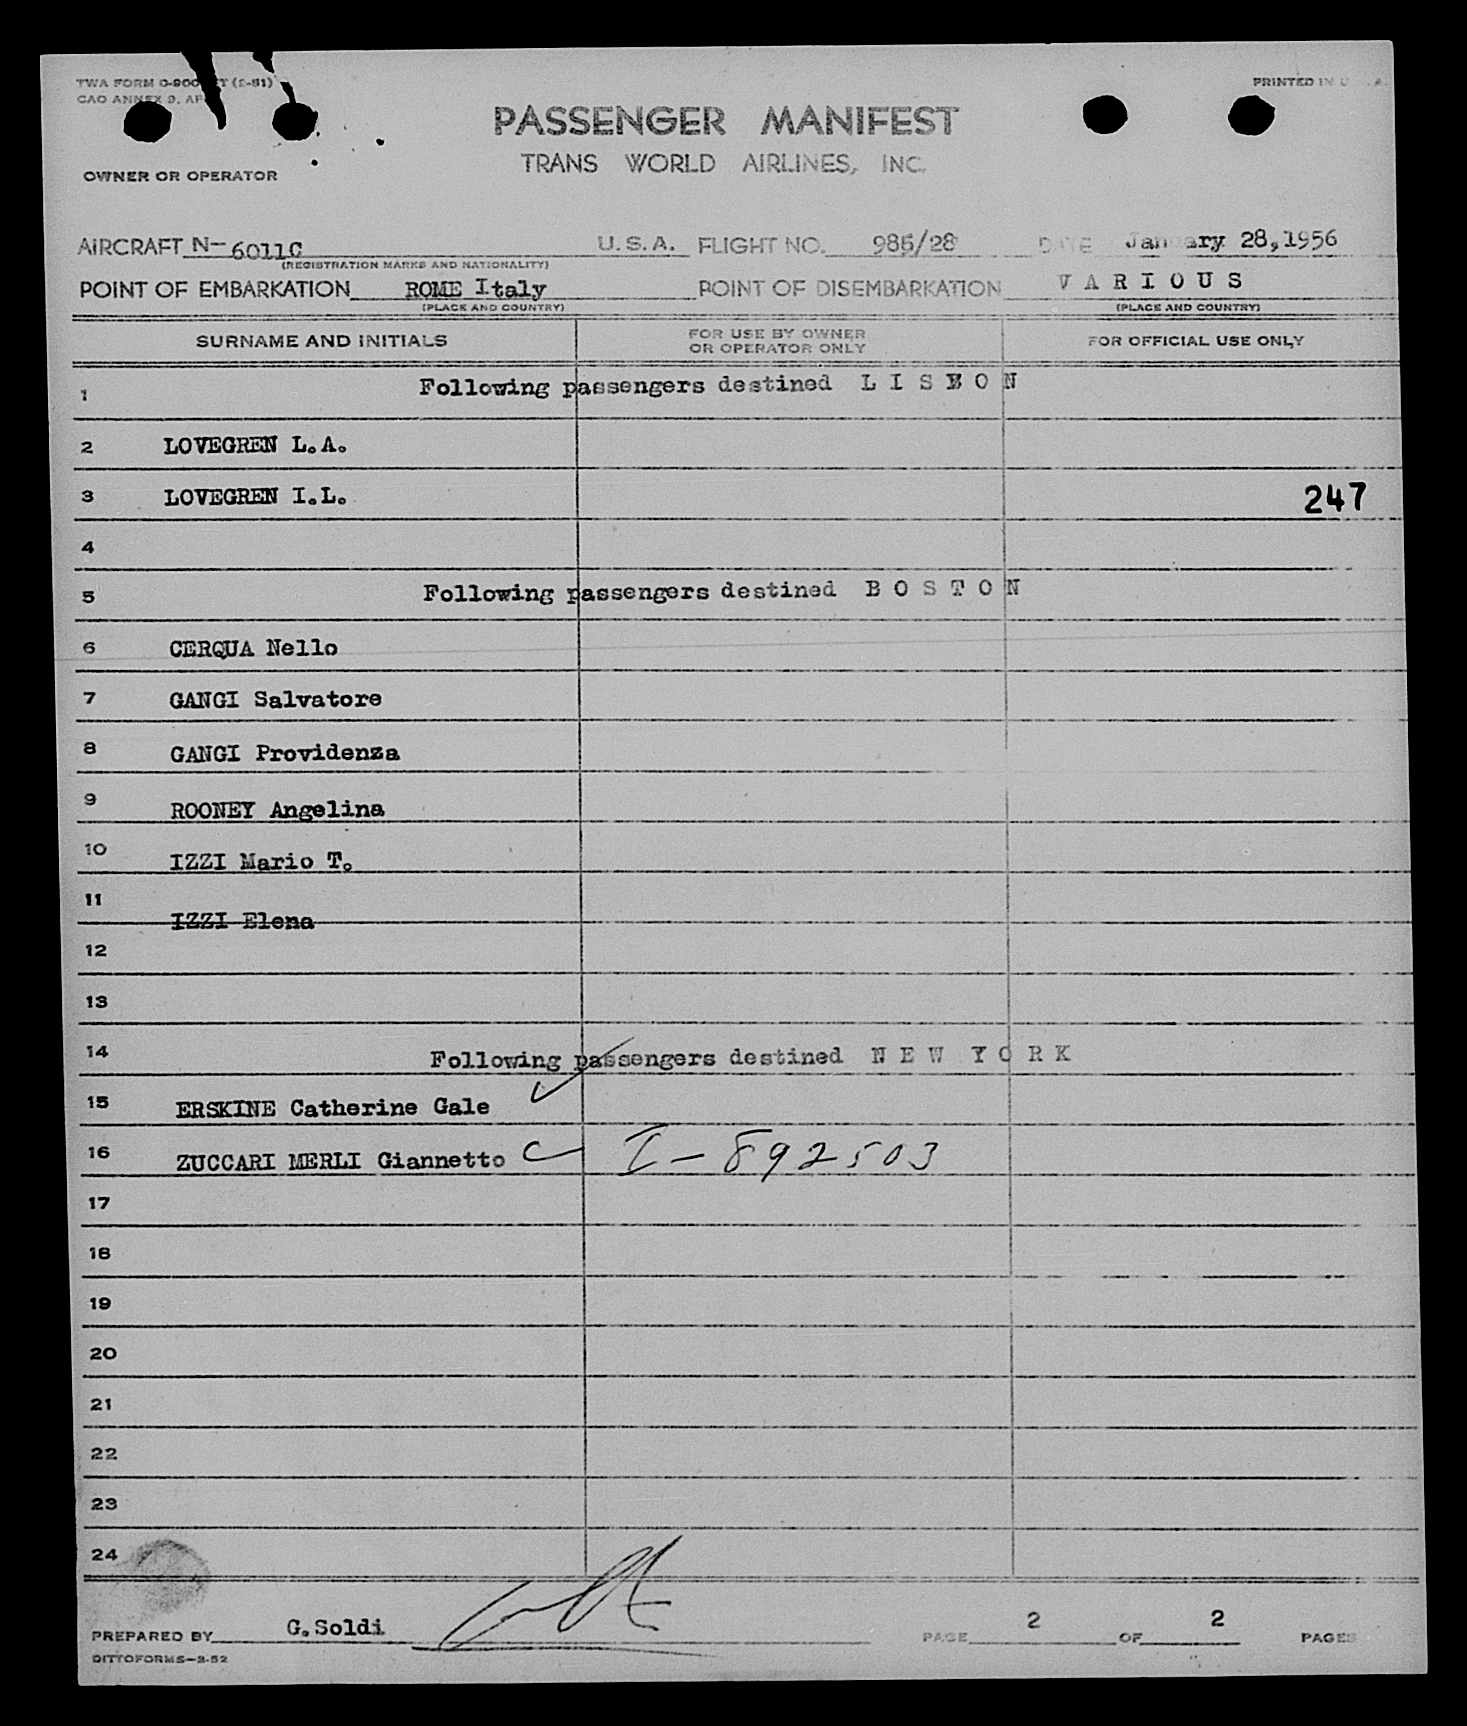 TWA FORM (2-51)
CAO ANNEX 9, AP
PRINTED IN U A.
PASSENGER MANIFEST
TRANS WORLD AIRLINES, INC.
OWNER OR OPERATOR
AIRCRAFT N-6011C U.S.A. FLIGHT NO. 985/28 DATE January 28,1956
(REGISTRATION MARKS AND NATIONALITY)
POINT OF EMBARKATION ROME Italy POINT OF DISEMBARKATION V A R I O U S
(PLACE AND COUNTRY) (PLACE AND COUNTRY)
SURNAME AND INITIALS FOR USE BY OWNER OR OPERATOR ONLY FOR OFFICIAL USE ONLY
1 Following passengers destined L I S B O N
2 LOVEGREN L.A.
3 LOVEGREN I.L. 247
4
5 Following passengers destined B O S T O N
6 CERQUA Nello
7 GANGI Salvatore
8 GANGI Providenza
9 ROONEY Angelina
10 IZZI Mario T.
11 IZZI Elena
12
13
14 Following passengers destined N E W Y O R K
15 ERSKINE Catherine Gale
16 ZUCCARI MERLI Giannetto I-892503
17
18
19
20
21
22
23
24
PREPARED BY G.Soldi PAGE 2 OF 2 PAGES
DITTOFORMS-2-52